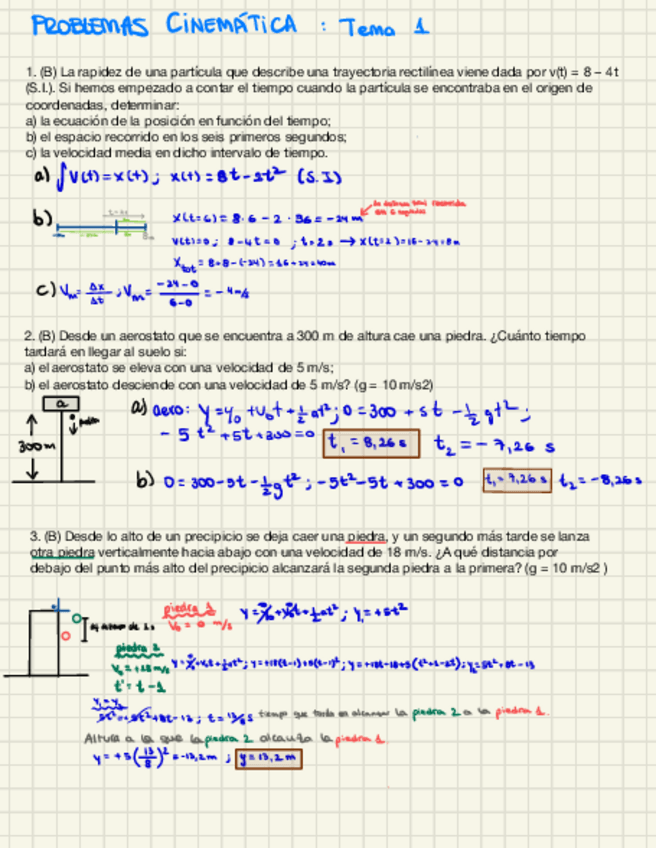 PROBLEMAS CINEMÁTICA : Tema 1
1. (B) La rapidez de una partícula que describe una trayectoria rectilínea viene dada por v(t) = 8 – 4t
(S.I.). Si hemos empezado a contar el tiempo cuando la partícula se encontraba en el origen de
coordenadas, determinar:
a) la ecuación de la posición en función del tiempo;
b) el espacio recorrido en los seis primeros segundos;
c) la velocidad media en dicho intervalo de tiempo.
a) ∫V(t)=x(t); x(t)=8t-2t² (S.I)
b) x(t=6)=8·6-2·36=-24m
v(t)=0; 8-4t=0; t=2s → x(t=2)=16-
x_tot = 8+8-(-24)=
c) Vm= Δx/Δt; Vm= -24-0/6-0 = -4m/s
2. (B) Desde un aerostato que se encuentra a 300 m de altura cae una piedra. ¿Cuánto tiempo
tardará en llegar al suelo si:
a) el aerostato se eleva con una velocidad de 5 m/s;
b) el aerostato desciende con una velocidad de 5 m/s? (g= 10 m/s2)
a
300m
a) aero: y=y₀+v₀t+½at²; 0=300+5t-½gt²;
-5t²+5t+300=0 t₁=8,26s t₂=-7,26 s
b) 0=300-5t-½gt²; -5t²-5t+300=0 t₁=7,26s t₂=-8,26s
3. (B) Desde lo alto de un precipicio se deja caer una piedra, y un segundo más tarde se lanza
otra piedra verticalmente hacia abajo con una velocidad de 18 m/s. ¿A qué distancia por
debajo del punto más alto del precipicio alcanzará la segunda piedra a la primera? (g = 10 m/s2 )
piedra 1
V₀ = 0 m/s
y=y₀+v₀t+½at²; y₁=+5t²
piedra 2
V₀=+18m/s
t'=t-1
y₁=y₂
t=13/8s tiempo que tarda en alcanzar la piedra 2 a la piedra 1.
Altura a la que la piedra 2 alcanza la piedra 1
y=+5(13/8)²=-13,2m; y=13,2m